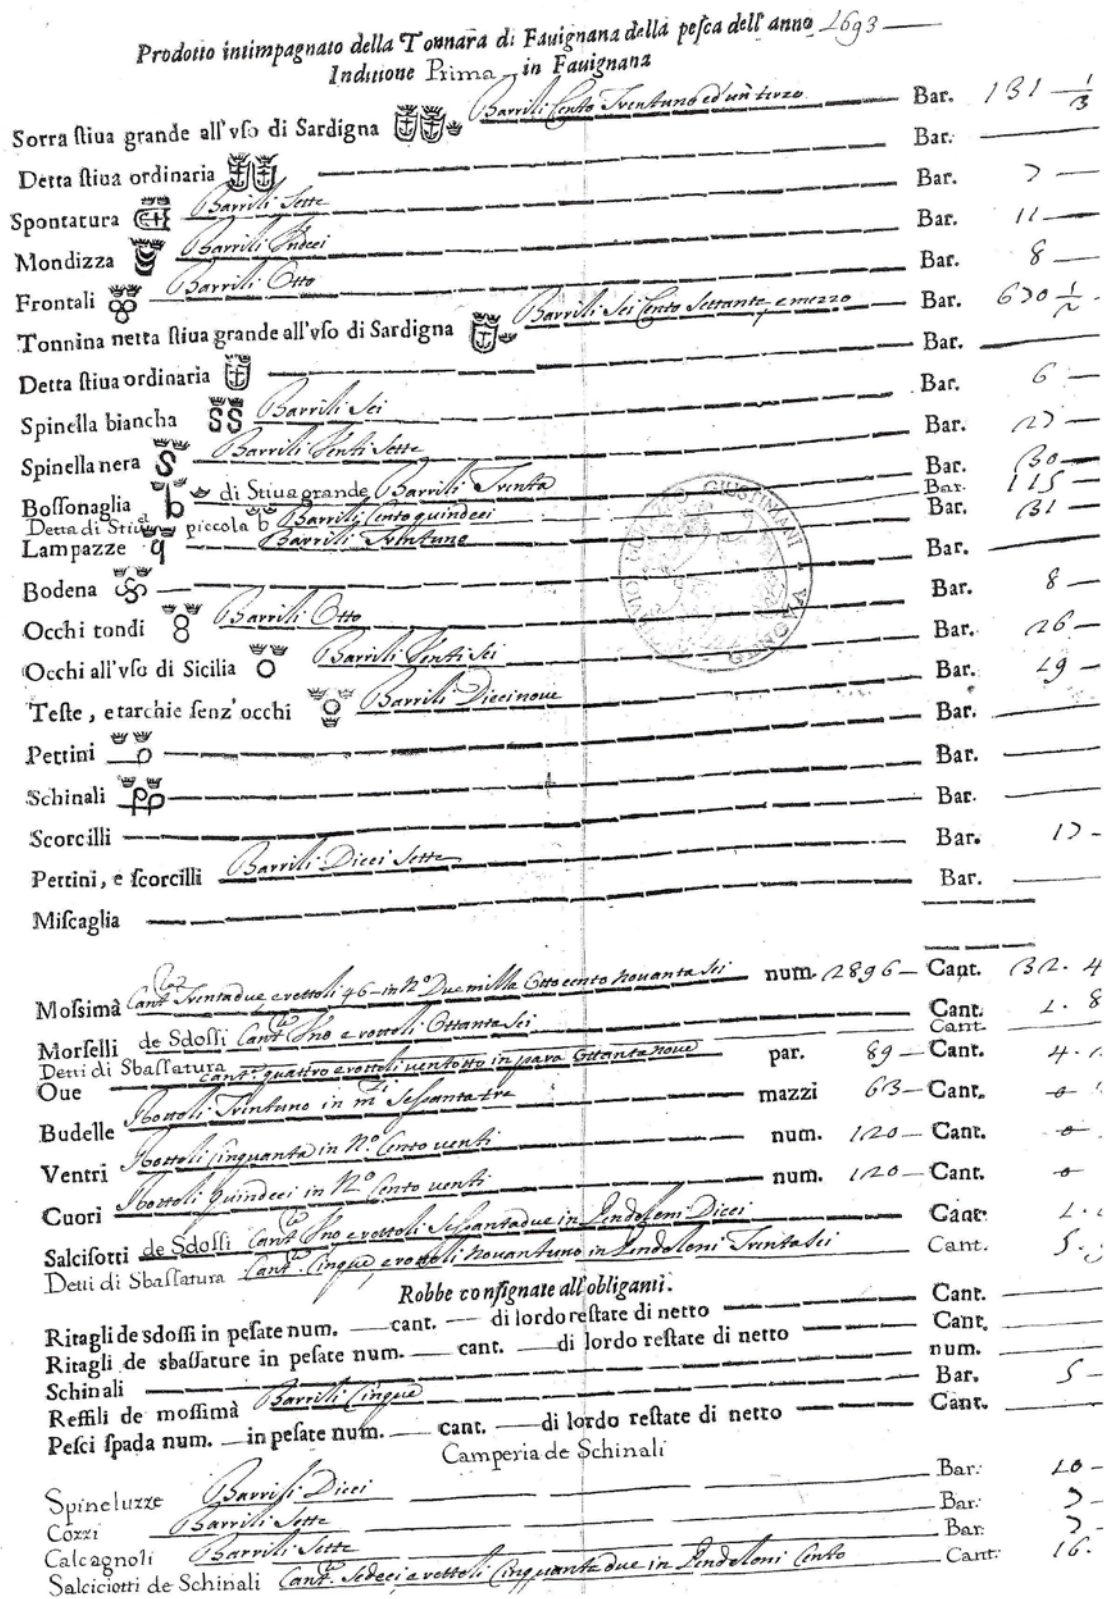 Prodotto intimpagnato della Tonnara di Fauignana della peſca dell'anno 1693
Inditione Prima in Fauignana
Sorra ſtiua grande all'vſo di Sardigna Barrili Cento Trentuno ed'un terzo Bar. 131 1/3
Detta ſtiua ordinaria Bar.
Spontatura Barrili Sette Bar. 7
Mondizza Barrili Undeci Bar. 11
Frontali Barrili Otto Bar. 8
Tonnina netta ſtiua grande all'vſo di Sardigna Barrili Sei Cento Settanta e mezzo Bar. 670 1/2
Detta ſtiua ordinaria Bar.
Spinella biancha SS Barrili Sei Bar. 6
Spinella nera S Barrili Venti Sette Bar. 27
Boſſonaglia b di Stiua grande Barrili Trenta Bar. 30
Detta di Stiua piccola b Barrili Cento quindeci Bar. 115
Lampazze q Barrili Trentuno Bar. 31
Bodena Bar.
Occhi tondi 8 Barrili Otto Bar. 8
Occhi all'vſo di Sicilia O Barrili Venti Sei Bar. 26
Teſte, e tarchie ſenz'occhi o Barrili Diecinoue Bar. 19
Pettini Bar.
Schinali pp Bar.
Scorcilli Bar.
Pettini, e ſcorcilli Barrili Dieci Sette Bar. 17
Miſcaglia Bar.
Moſsimà Cant. Trentadue e rottoli 46 in N.º Due milla Otto cento Novanta Sei num. 2896 Cant. 32. 4
Morſelli de Sdoſſi Cant. Uno e rottoli Ottanta Sei Cant. 1. 8
Detti di Sbaſſatura Cant.
Oue cant. quattro e rottoli ventotto in para Ottanta noue par. 89 Cant. 4.
Budelle Rottoli Trentuno in m.ti Seſsanta tre mazzi 63 Cant. 0
Ventri Rottoli Cinquanta in N.º Cento venti num. 120 Cant. 0
Cuori Rottoli quindeci in N.º Cento venti num. 120 Cant. 0
Salciſotti de Sdoſſi Cant. Uno e rottoli Seſsantadue in Pendoloni Dieci Cant. 1.
Detti di Sbaſſatura Cant. Cinque e rottoli Novantuno in Pendoloni Trenta Sei Cant. 5.
Robbe conſignate all'obliganti.
Ritagli de sdoſſi in peſate num. cant. di lordo reſtate di netto Cant.
Ritagli de sbaſſature in peſate num. cant. di lordo reſtate di netto Cant.
Schinali num.
Reffili de moſſimà Barrili Cinque Bar. 5
Peſci ſpada num. in peſate num. cant. di lordo reſtate di netto Cant.
Camperia de Schinali
Spineluzze Barrili Dieci Bar. 10
Cozzi Barrili Sette Bar. 7
Calcagnoli Barrili Sette Bar. 7
Salciciotti de Schinali Cant. Sedeci e rottoli Cinquanta due in Pendoloni Cento Cant. 16.
GIUSTINIANI